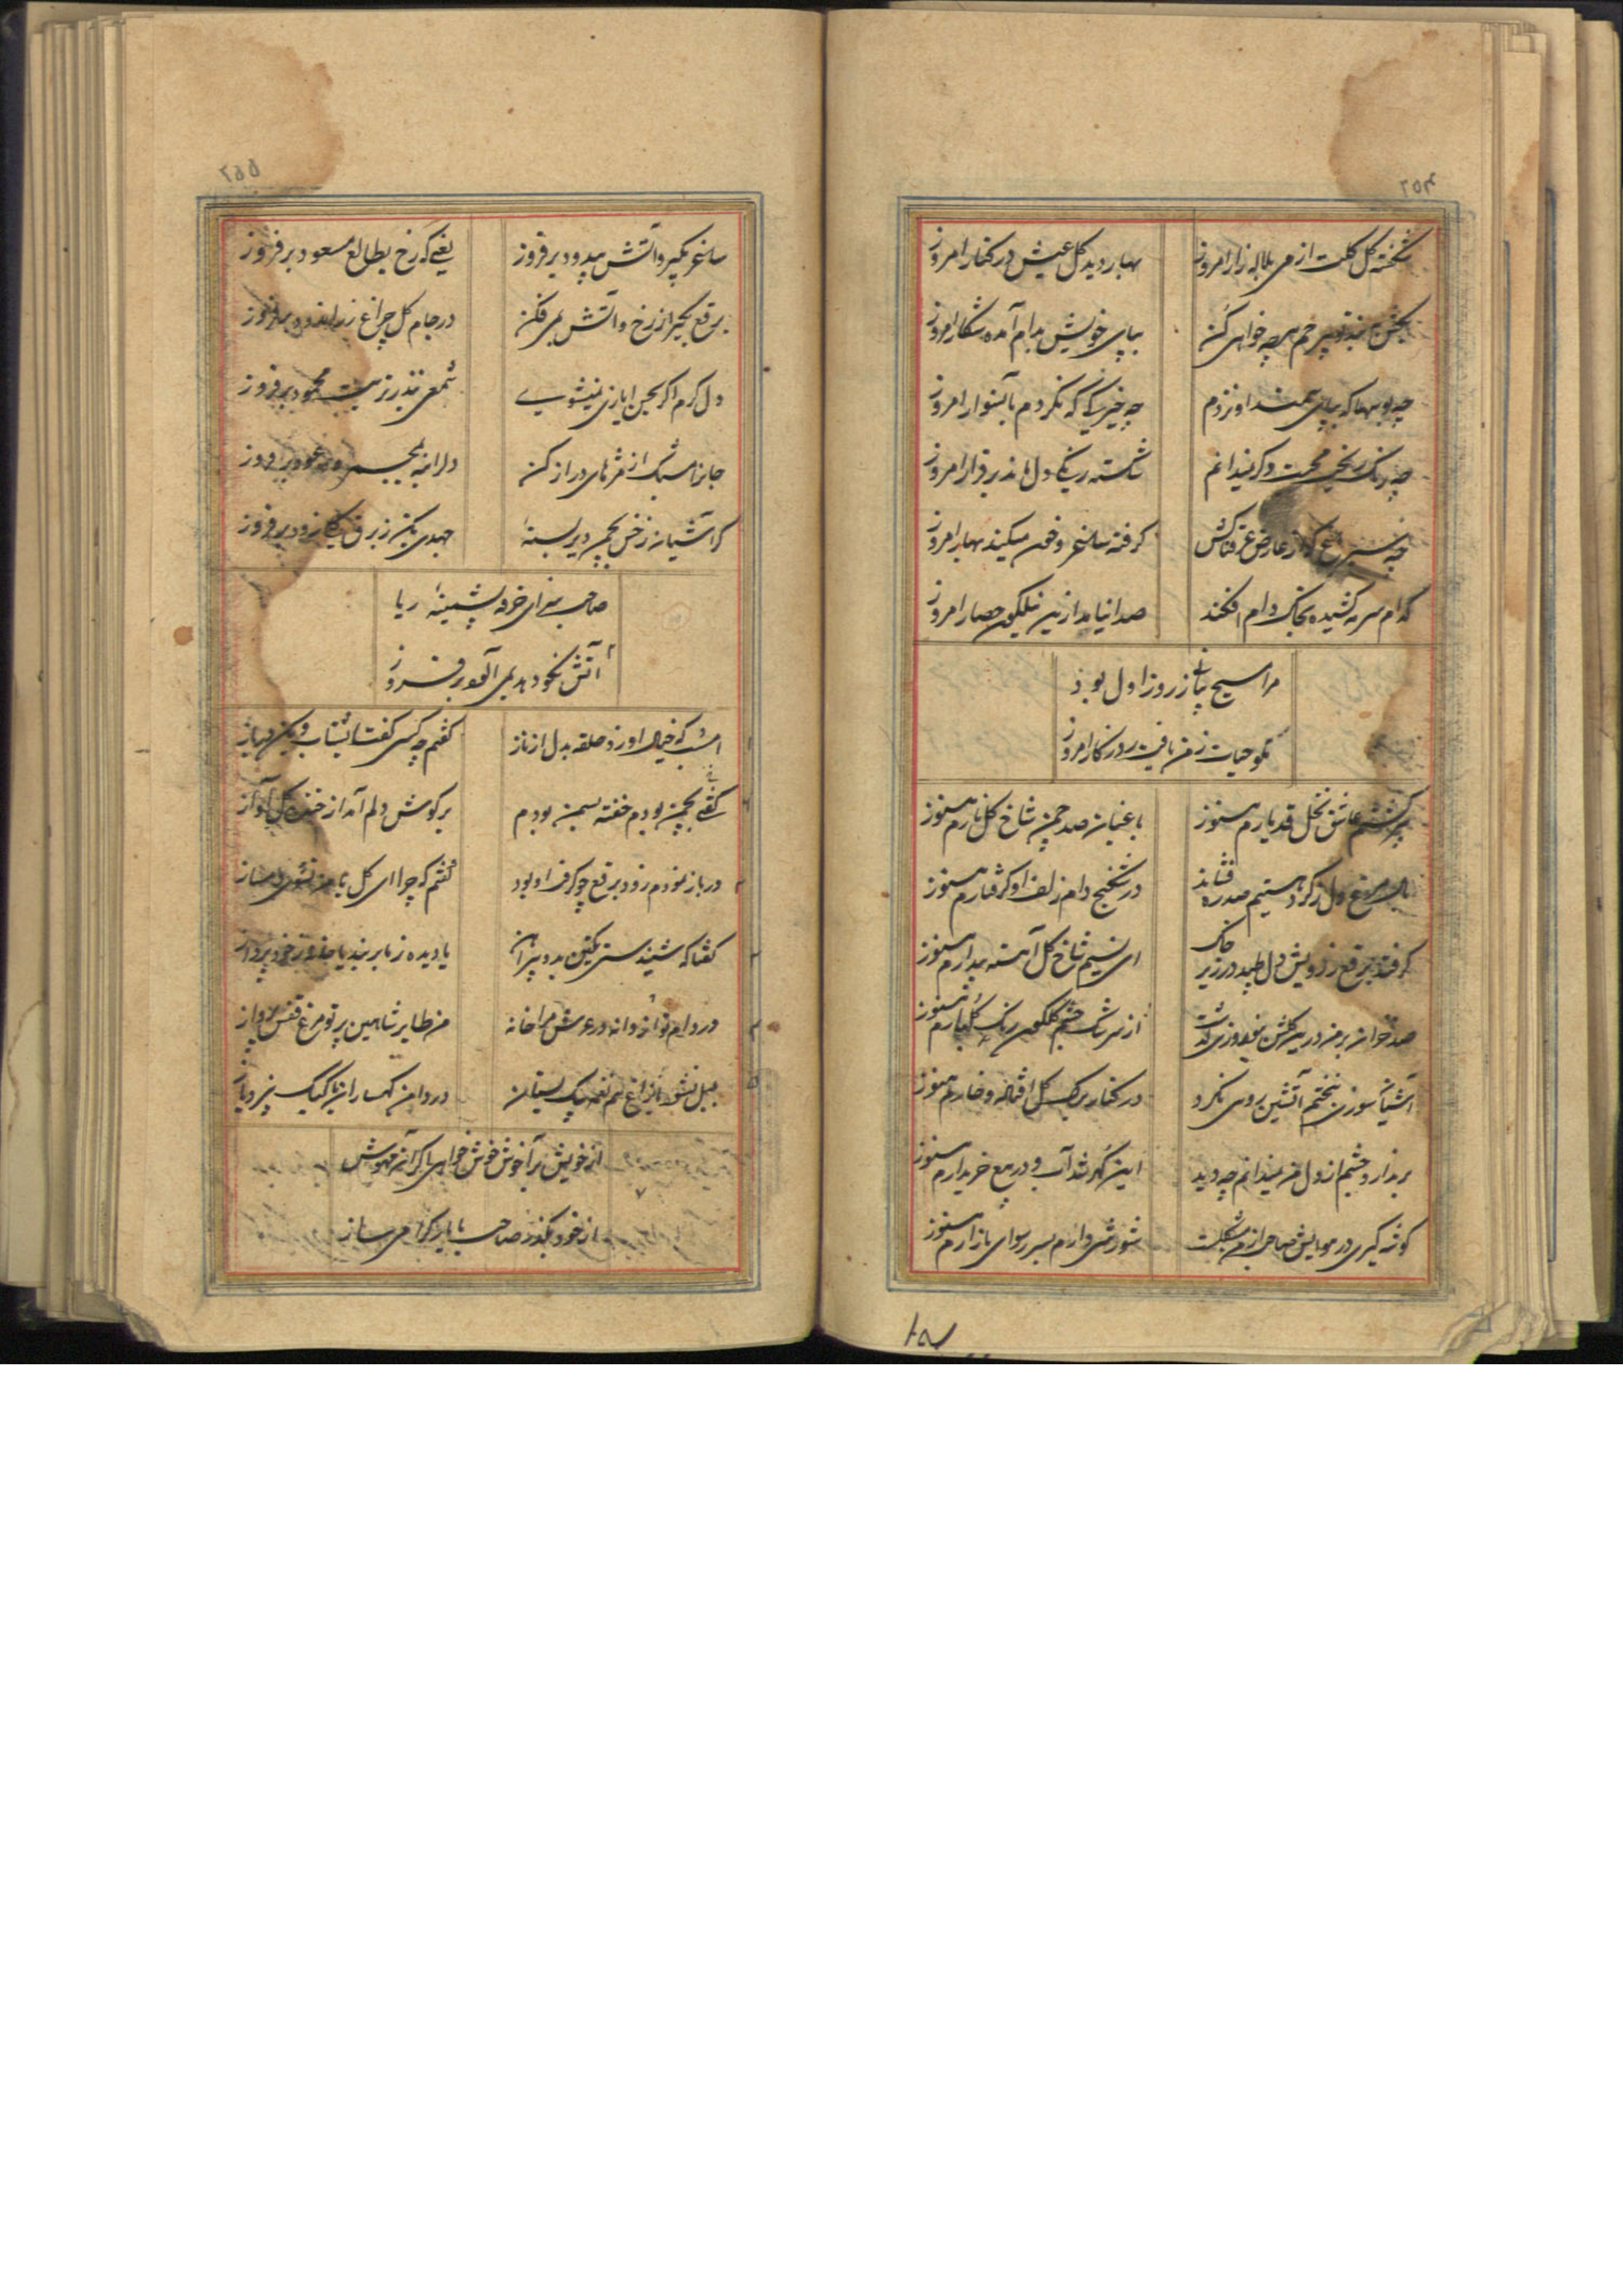 شکفته گل گلت از می بلاله زار امروز
بهار دید گل عیش در کنار امروز
بکش به تیغ بیرحم هر چه خواهی کن
بپای خویش بدام آمده شکار امروز
چه بوسها که بپای سمند او نزدم
چه خیرگی که نکردم بآنسوار امروز
چه رنگ ریخت محبت دگر نمیدانم
شکسته رنگی دل ماند برقرار امروز
گرفته ساغر و خون میکند بهار امروز
کدام سرمه کشیده بخاک دام افکند
صدا نیامد ازین نیلگون حصار امروز
مرا مسیح زبانی ز روز اول بود
نگو حیات ز من یافت روزگار امروز
عاشق نخل قد یارم هنوز
باغبان صد چمن شاخ گل نارم هنوز
مرغ دل ز گرد هستیم صد ره فشاند
در شکنج دام زلف او گرفتارم هنوز
گرفته برقع ز رویش دل طپد در زیر خاک
ای نسیم شاخ گل آهسته بیدارم هنوز
صد خزان بر من درین گلشن بنوروزی گذشت
از سرشک چشم گلگون رنگ گلبارم هنوز
آشیان سوزی نختم آتشین رویی نکرد
در کنار برگ گل افتاده و خارم هنوز
بر ندارد چشم از دل من نمیدانم چه دید
این گهر شد آب و در بیع خریدارم هنوز
گوشه گیری در موایش صاحب از من مشکلست
شورشی دارم بسر رسوای بازارم هنوز
ساغر بگیر و آتش بیدود برفروز
یعنی که رخ بطالع مسعود برفروز
برقع بگیر از رخ و آتش بمی فکن
در جام گل چراغ زر اندود برفروز
دل گرم اگر بحسن ایازی نمیشوی
شمعی بنذر تربت محمود برفروز
جانرا سپند از مژهای دراز کن
دلرا به مجمر و عود برفروز
گر آشیان ز خس بچمن دیر بسته‌ای
جهدی بکن ز برق نگه زود برفروز
صاحب سزای خرقه پشمینه ریا
آتش نکو دهد بمی آلوده برفروز
امشب که خیال او زد حلقه بدل از ناز
گفتم چه کسی گفتا بشتاب و ببین در باز
گفتی بچمن بودم خفته بسمن بودم
بر گوش دلم آمد از خنده گل آواز
در باز نمودم زود برقع چو گرفت او بود
گفتم که چرا ای گل با من نشوی دمساز
گفتا که شنیدستی بکفن بدو پیراهن
یا دیده ز ما بر بند یا خانه ز خود پرداز
در دام تو از دانه در عرش مرا خانه
من طایر شاهین پر تو مرغ قفس پرواز
بلبل نشود از زاغ هم نغمه یک بستان
در دامن کهسار از با کبک نپرد باز
از خویش برآ خوش خوش خواهی اگر آن مهوش
از خود بگذر صاحب با یار گرامی ساز